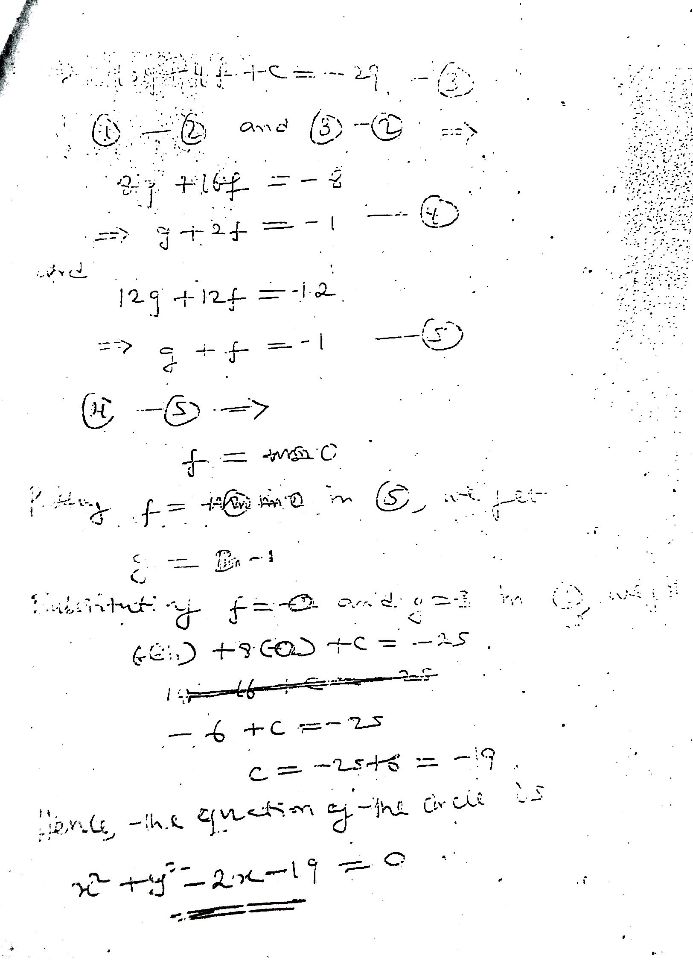 +4f +c = -29 - ③
① - ② and ③ - ② =>
8g + 16f = -8
=> g + 2f = -1 — ④
and
12g + 12f = -12
=> g + f = -1 — ⑤
④ - ⑤ =>
f = 0
Putting f = 0 in ⑤, we get
g = -1
Substituting f = 0 and g = -1 in ①, we get
6(-1) + 8(0) + c = -25
-6 + c = -25
c = -25+6 = -19
Hence, the equation of the circle is
x² + y² - 2x - 19 = 0